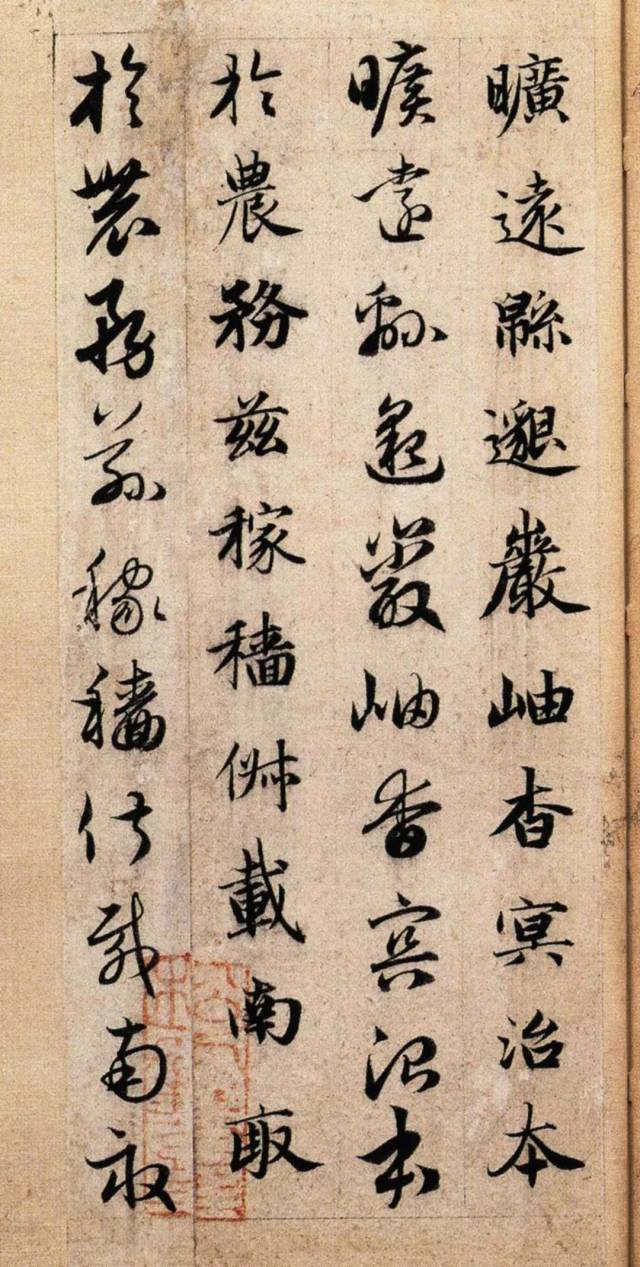 曠遠緜邈巖岫杳冥治本
曠遠緜邈巖岫杳冥治本
於農務茲稼穡俶載南畝
於農務茲稼穡俶載南畝